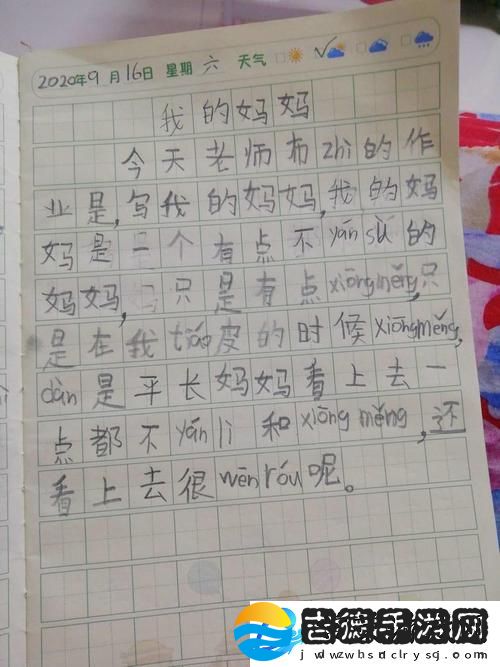 2020年9月16日 星期六 天气
我的妈妈
今天老师布zhi的作
业是,写我的妈妈,我的妈
妈是一个有点不yánsù的
妈妈,只是有点xiōngměng,只
是在我tiáo皮的时候xiōngměng,
dàn是平长妈妈看上去一
点都不yánlì和xiōngměng,还
看上去很wēnróu呢。
吉德手游网
jdwwbsndclrysg.com